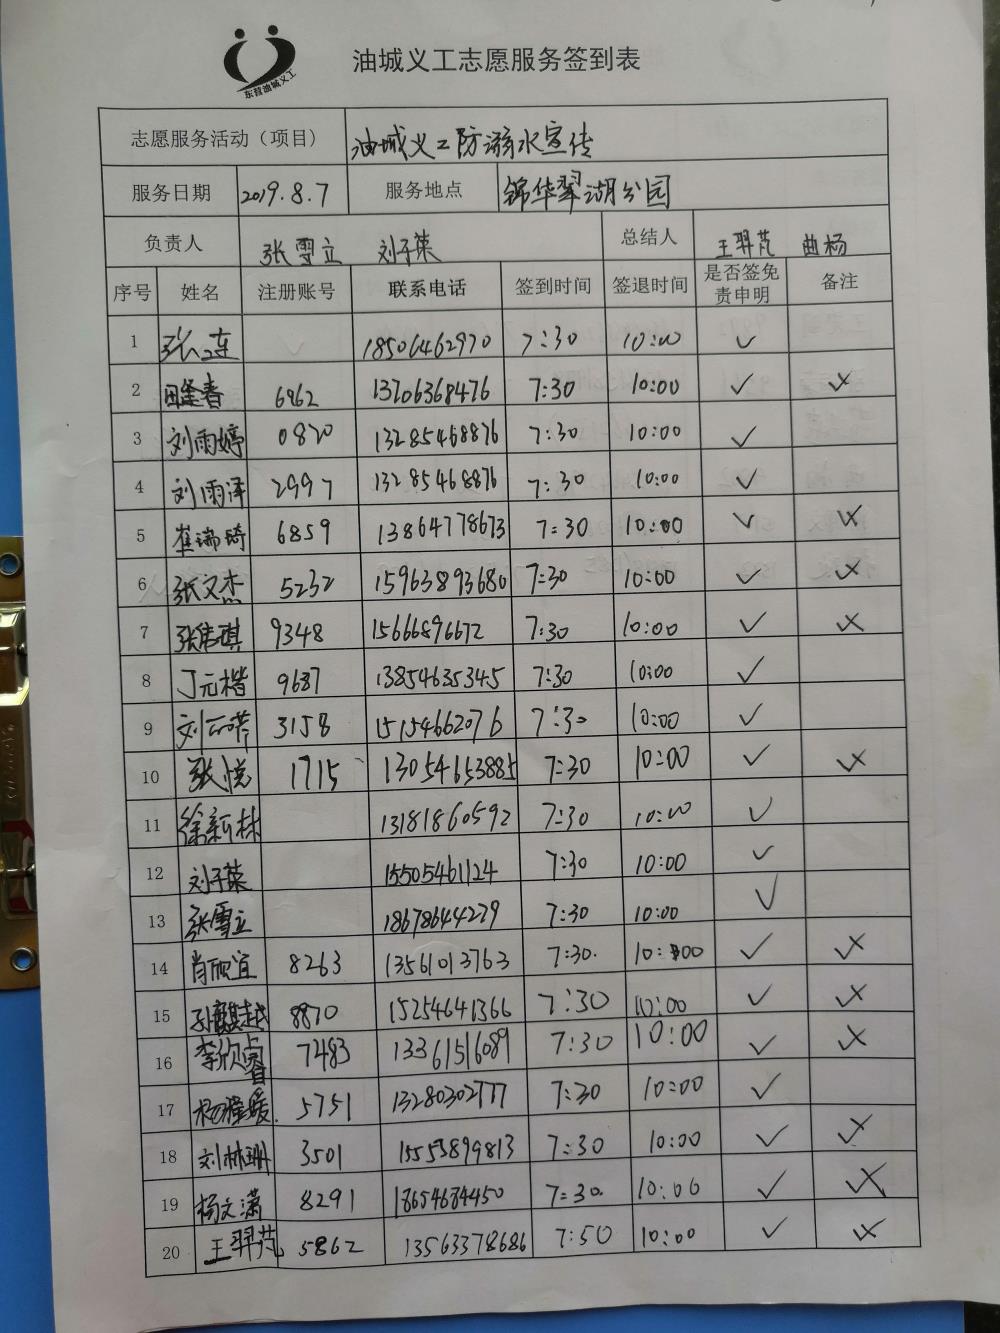 东营油城义工
油城义工志愿服务签到表
志愿服务活动（项目） 油城义工防溺水宣传
服务日期 2019.8.7 服务地点 锦华翠湖公园
负责人 张雪立 刘子菜 总结人 王羿芃 曲杨
序号 姓名 注册账号 联系电话 签到时间 签退时间 是否签免责申明 备注
1 18506462970 7:30 10:00 ✓
2 田逢春 6962 13706368476 7:30 10:00 ✓
3 刘雨婷 0820 13285468876 7:30 10:00 ✓
4 刘雨泽 2997 13285468876 7:30 10:00 ✓
5 崔瑞琦 6859 13864778673 7:30 10:00 ✓
6 张文杰 5232 15963893680 7:30 10:00 ✓
7 张伟琪 9348 15666896672 7:30 10:00 ✓
8 丁元楷 9687 13854635345 7:30 10:00 ✓
9 3158 15154662076 7:30 10:00 ✓
10 张悦 1715 13054653885 7:30 10:00 ✓
11 徐新林 13181860592 7:30 10:00 ✓
12 刘子菜 15505461124 7:30 10:00 ✓
13 张雪立 18678644279 7:30 10:00 ✓
14 肖欣宜 8263 13561013763 7:30. 10:00 ✓
15 孙麒越 8870 15254641366 7:30 10:00 ✓
16 李欣睿 7483 13361516089 7:30 10:00 ✓
17 5751 13280302777 7:30 10:00 ✓
18 刘林珊 3501 15553899813 7:30 10:00 ✓
19 杨文潇 8291 18654684450 7:30. 10:00 ✓
20 王羿芃 5862 13563378686 7:50 10:00 ✓